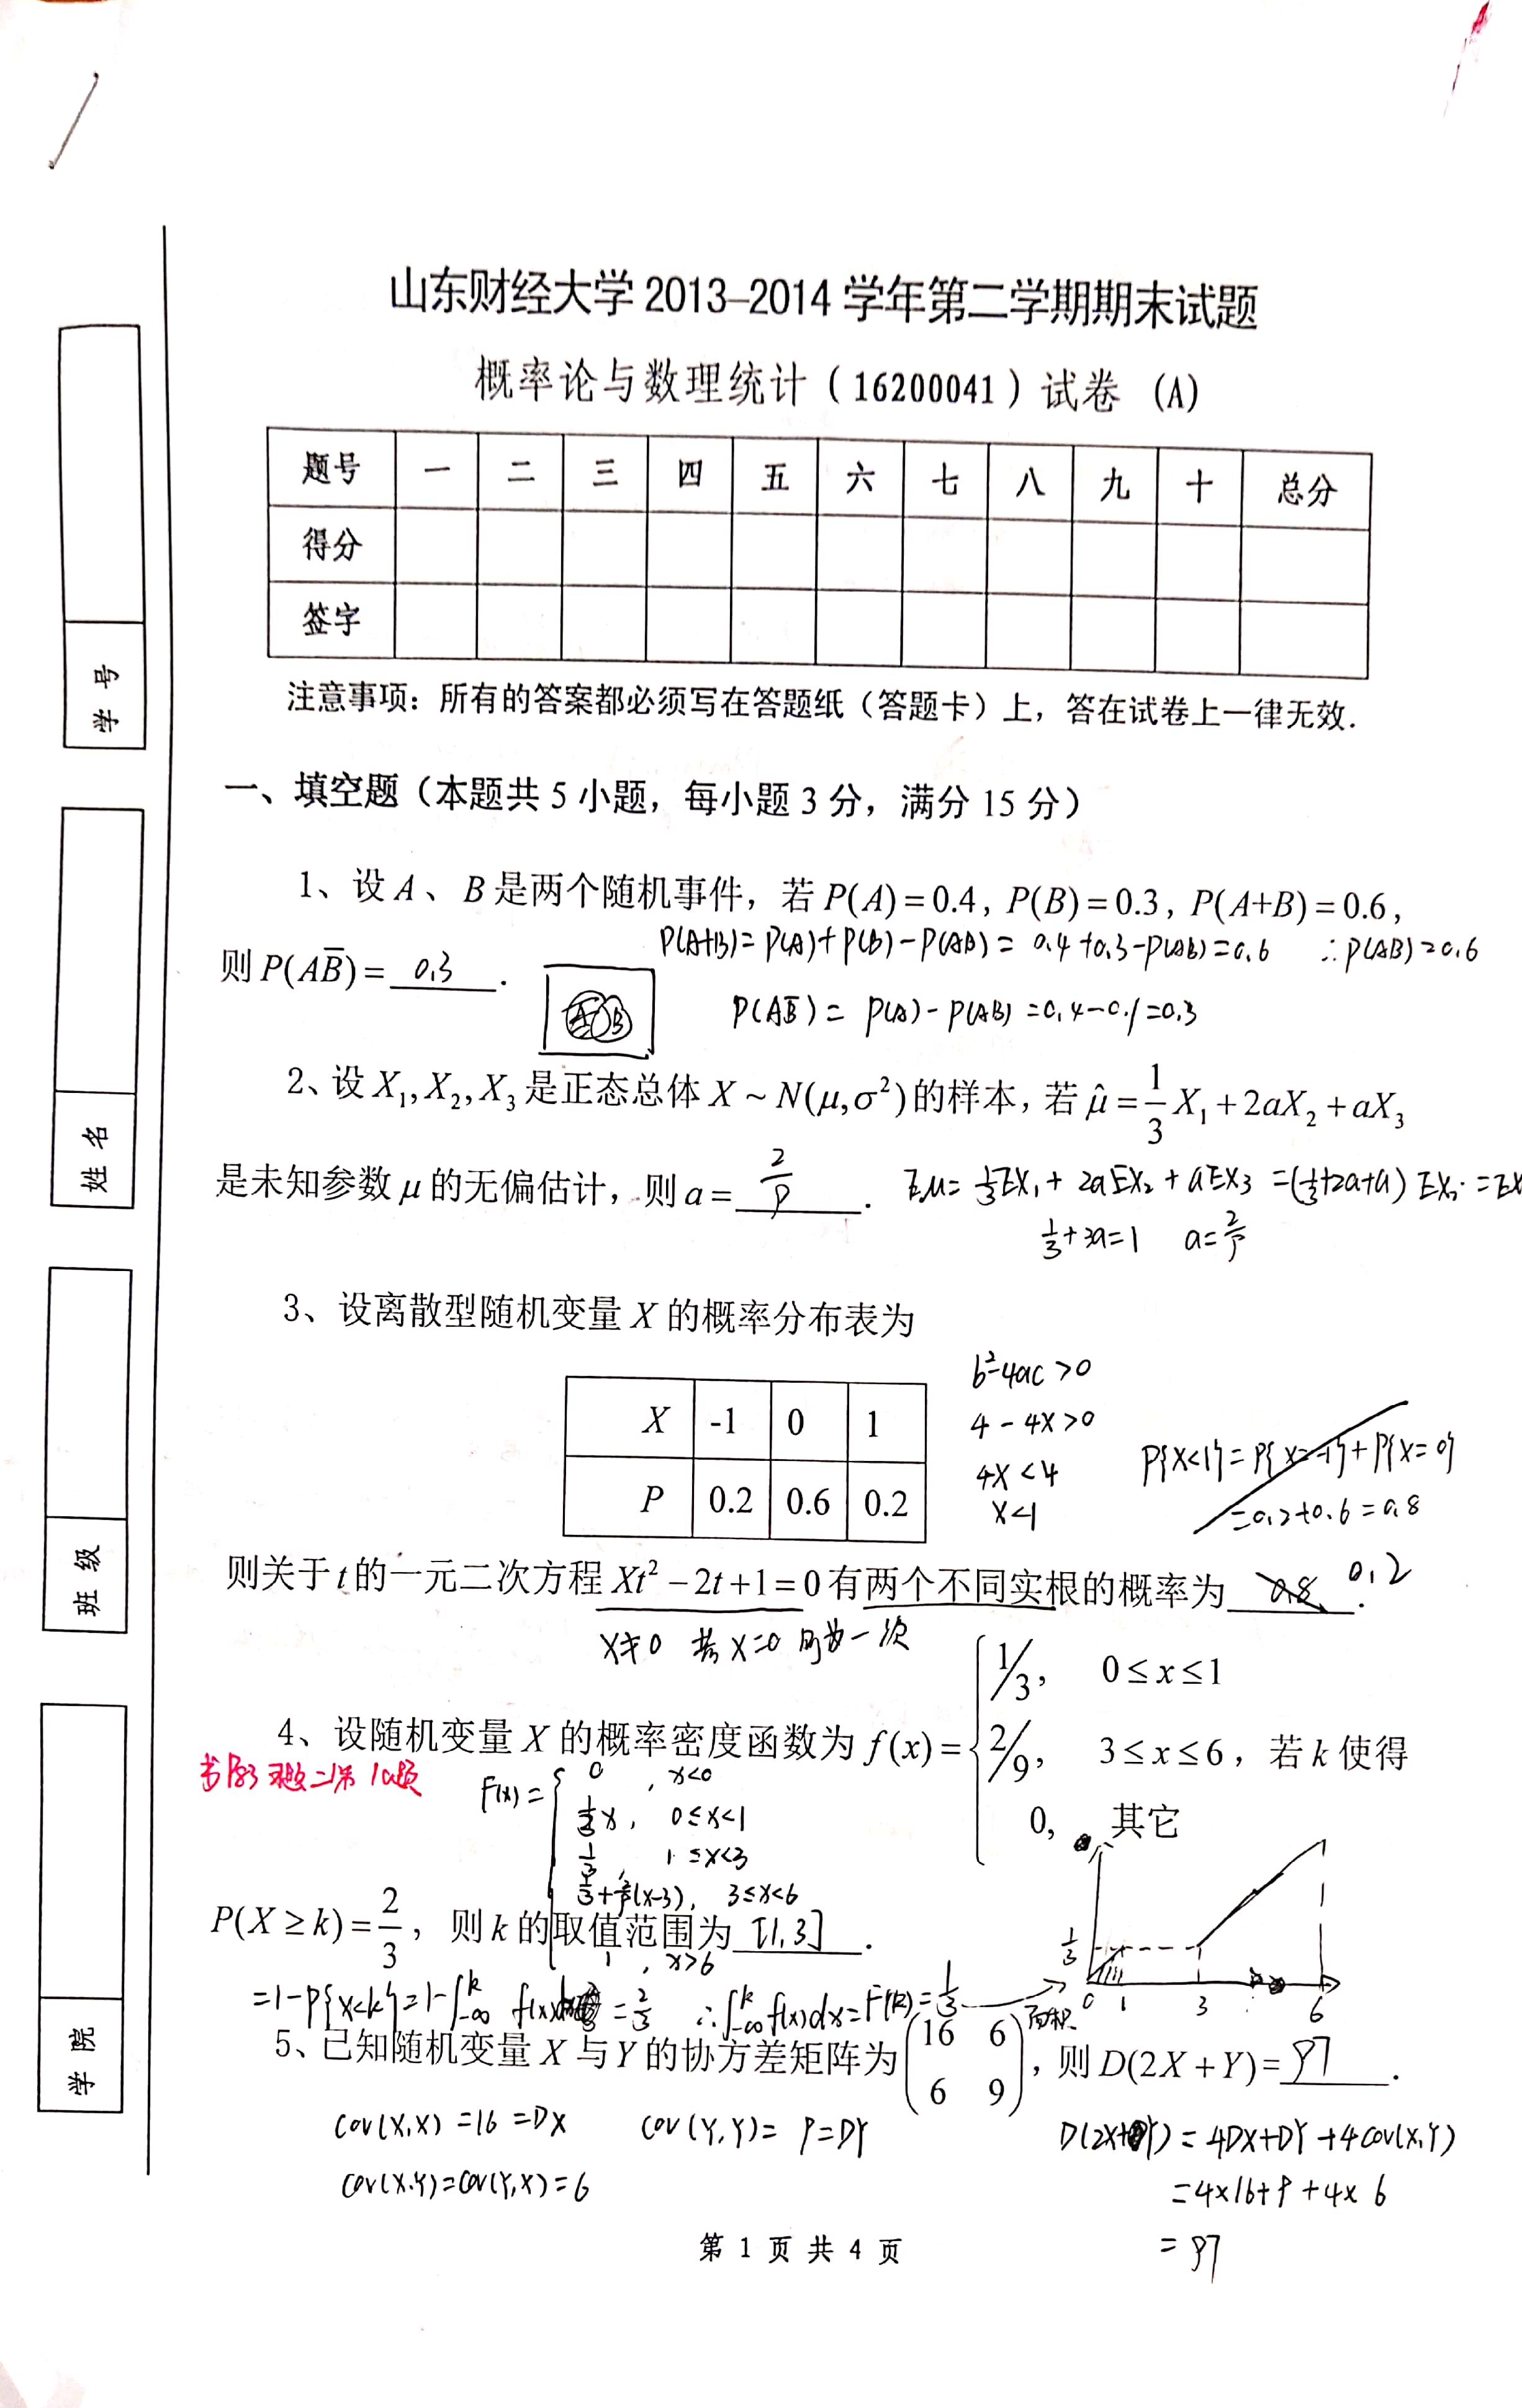 山东财经大学 2013-2014 学年第二学期期末试题
概率论与数理统计（16200041）试卷 (A)
题号 一 二 三 四 五 六 七 八 九 十 总分
得分
签字
注意事项：所有的答案都必须写在答题纸（答题卡）上，答在试卷上一律无效.
学号
姓名
班级
学院
一、填空题（本题共 5 小题，每小题 3 分，满分 15 分）
1、设 A、B 是两个随机事件，若 P(A)=0.4, P(B)=0.3, P(A+B)=0.6,
P(A+B)=P(A)+P(B)-P(AB)= 0.4+0.3-P(AB)=0.6 ∴P(AB)=0.6
则 P(AB̅)= 0.3 .
A B
P(AB̅)= P(A)-P(AB)=0.4-0.1=0.3
2、设 X₁,X₂,X₃ 是正态总体 X ~ N(μ,σ²) 的样本，若 μ̂ = 1/3 X₁ + 2aX₂ + aX₃
是未知参数 μ 的无偏估计，则 a = 2/9 . Eμ= 1/3EX₁+ 2aEX₂+ aEX₃ =(1/3+2a+a) EXᵢ =EX
1/3+3a=1 a=2/9
3、设离散型随机变量 X 的概率分布表为
X -1 0 1
P 0.2 0.6 0.2
b²-4ac>0
4-4X>0
4X<4
X<1
P{X<1}=P{X=-1}+P{X=0}
=0.2+0.6=0.8
则关于 t 的一元二次方程 Xt²-2t+1=0 有两个不同实根的概率为 0.8 . 0.2
X≠0 若X=0 则为一次
4、设随机变量 X 的概率密度函数为 f(x)= { 1/3, 0≤x≤1
2/9, 3≤x≤6，若 k 使得
0, 其它
书P83 习题二第10题
F(x)= { 0, x<0
1/3x, 0≤x<1
1/3, 1≤x<3
1/3+2/9(x-3), 3≤x<6
1, x>6
P(X≥k)=2/3，则 k 的取值范围为 [1,3] .
1/3 0 1 3 6
=1-P{X<k}=1-∫₋∞ᵏ f(x)dx =2/3 ∴∫₋∞ᵏf(x)dx=F(k)=1/3 面积
5、已知随机变量 X 与 Y 的协方差矩阵为 (16 6
6 9)，则 D(2X+Y)= 97 .
Cov(X,X)=16=DX Cov(Y,Y)=9=DY
D(2X+Y)=4DX+DY+4Cov(X,Y)
Cov(X,Y)=Cov(Y,X)=6
=4×16+9+4×6
=97
第 1 页 共 4 页